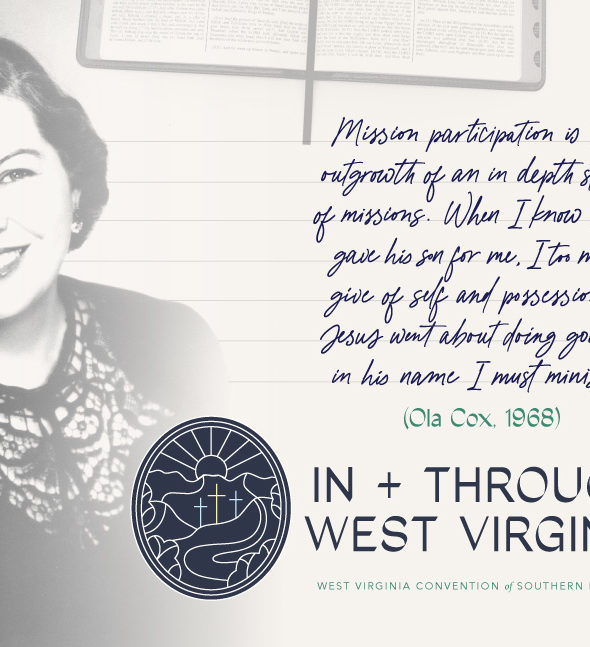 Mission participation is
outgrowth of an in depth
of missions. When I know
gave his son for me, I too
give of self and
Jesus went about doing
in his name I must
(Ola Cox, 1968)
IN +
WEST
WEST VIRGINIA CONVENTION of SOUTHERN